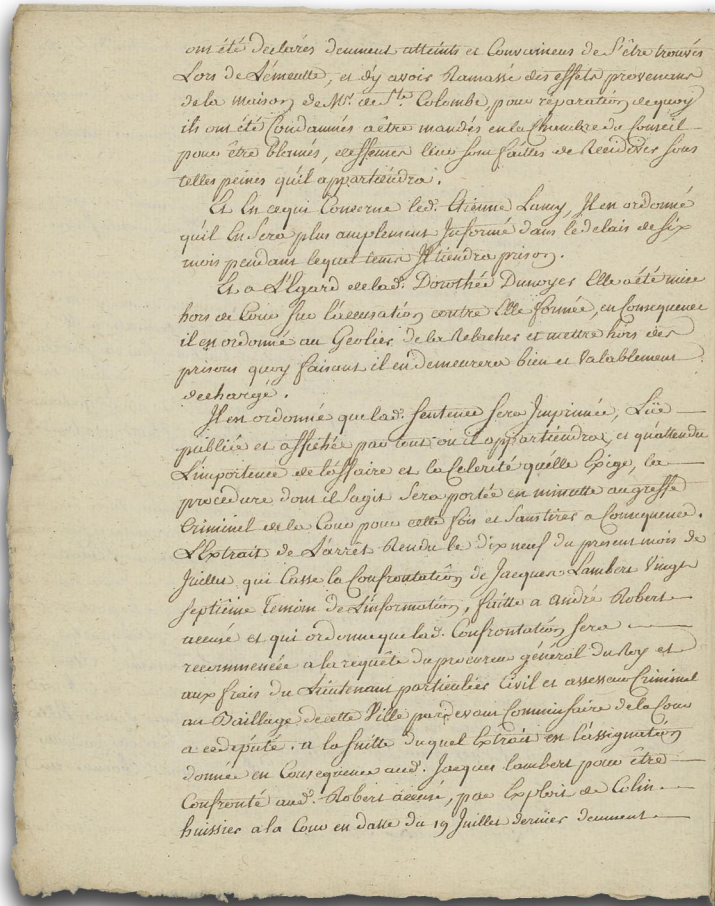 ont été declarés deument atteints et Convaincus de S'être trouvés
Lors de L'émeutte, et d'y avoir Ramassé des effets provenans
de la maison de Mr. de Ste. Colombe, pour réparation de quoy
ils ont été Condamnés a être mandés en la Chambre du Conseil
pour être blamés, deffenses leur sont faittes de Recidiver sous
telles peines qu'il appartiendra.
Et En ce qui Concerne led. Etienne Lamy, Il en ordonné
qu'il En Sera plus amplement Informé dans le delais de Six
mois pendant lequel tems Il tiendra prison.
Et a L'Egard de lad. Dorothée Dunoyer Elle a été mise
hors de Cour Sur l'accusation contre Elle formée, en Consequence
il en ordonné au Geolier de la Relacher et mettre hors des
prisons quoy faisant il en demeurera bien et Valablement
decharge.
Il en ordonné que lad. Sentence Sera Imprimée, Lüe
publiée et affichée par tout ou il appartiendra, et qu'attendu
L'importence de l'affaire et la Celerité qu'elle Exige, la
procedure dont il S'agit Sera portée en minutte au greffe
Criminel de la Cour pour cette fois et Sans tirer a Consequence.
L'Extrait de L'arrêt Rendu le dix neuf du present mois de
Juillet, qui Casse la Confrontation de Jacques Lambert Vingt
Septieme Temoin de L'information, faitte a andré Robert
accusé et qui ordonne que lad. Confrontation Sera
recommencée a la requête du procureur général du Roy et
aux frais du Lieutenant particulier Civil et assesseur Criminel
au Baillage de cette Ville pardevant Commissaire de la Cour
a ce député. a la Suitte du quel Extrait en l'assignation
donnée en Consequence aud. Jacques lambert pour être
Confronté aud. Robert accusé, par Exploit de Colin
huissier a la Cour en datte du 19 Juillet dernier deument